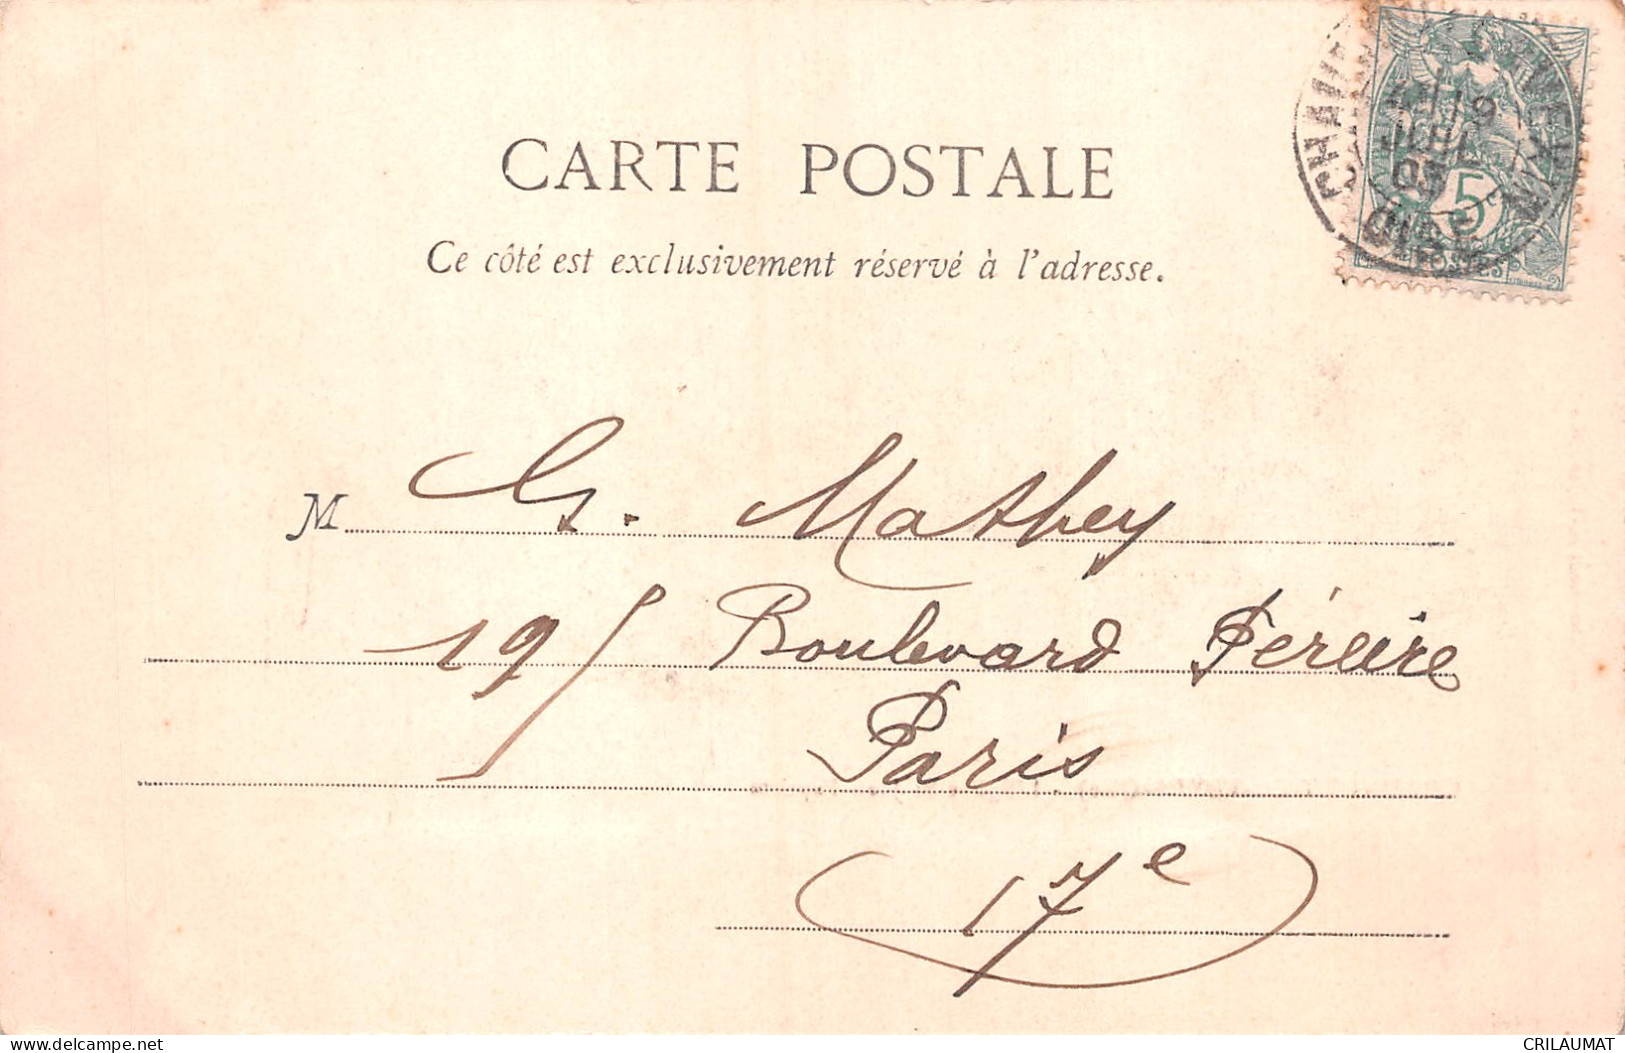 CARTE POSTALE
Ce côté est exclusivement réservé à l'adresse.
M G. Mathey
19 Boulevard Péreire
Paris
17e
5
POSTES
OISE
03
www.delcampe.net
CRILAUMAT